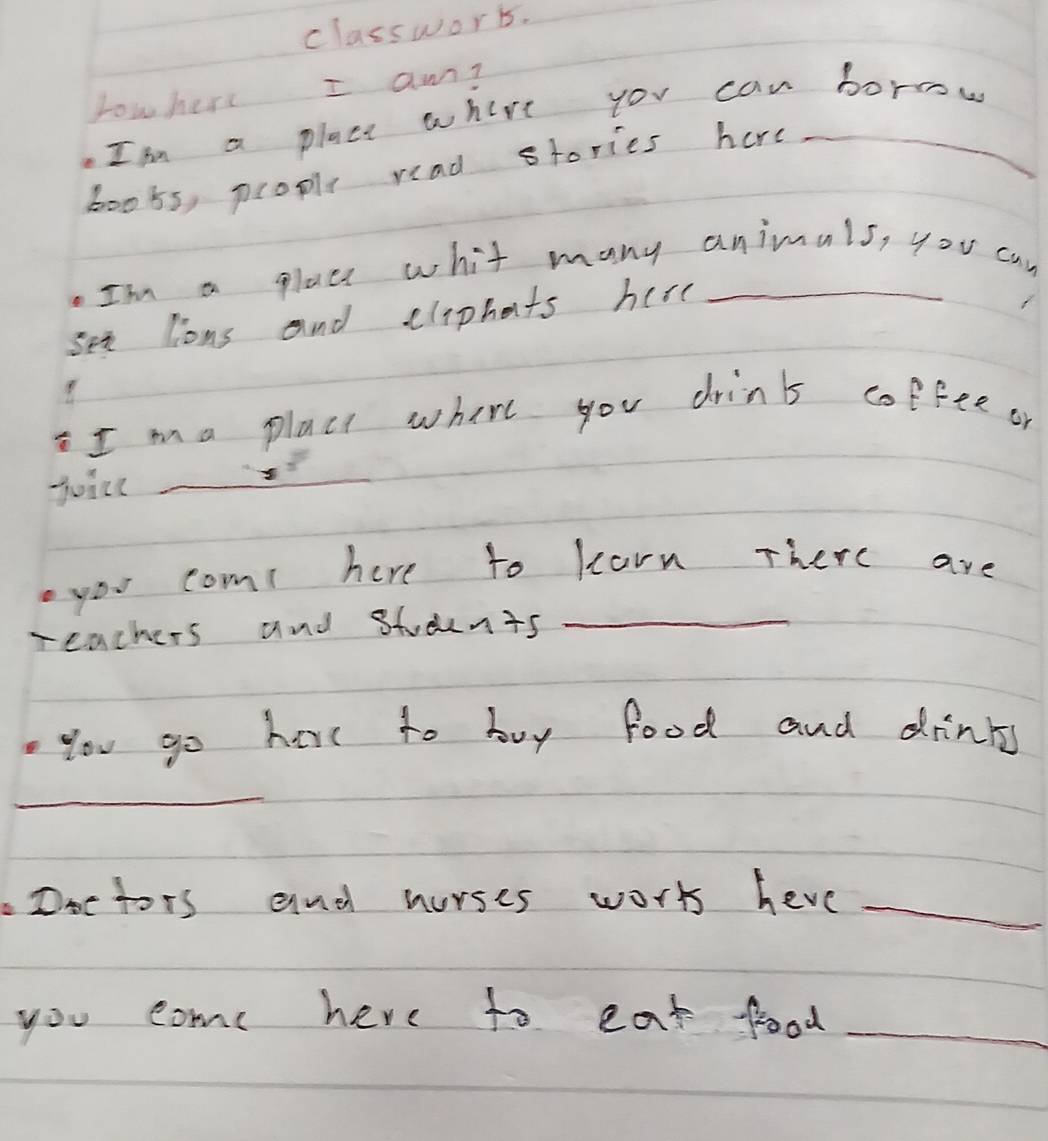 classwork.
where I am?
• I'm a place where you can borrow
books, people read stories here
• I'm a place whit many animals, you can
see lions and elephats here
• I'm a place where you drink coffee or
juice
• you come here to learn There are
Teachers and students
• You go here to buy food and drinks
• Doctors and nurses work here
you come here to eat food